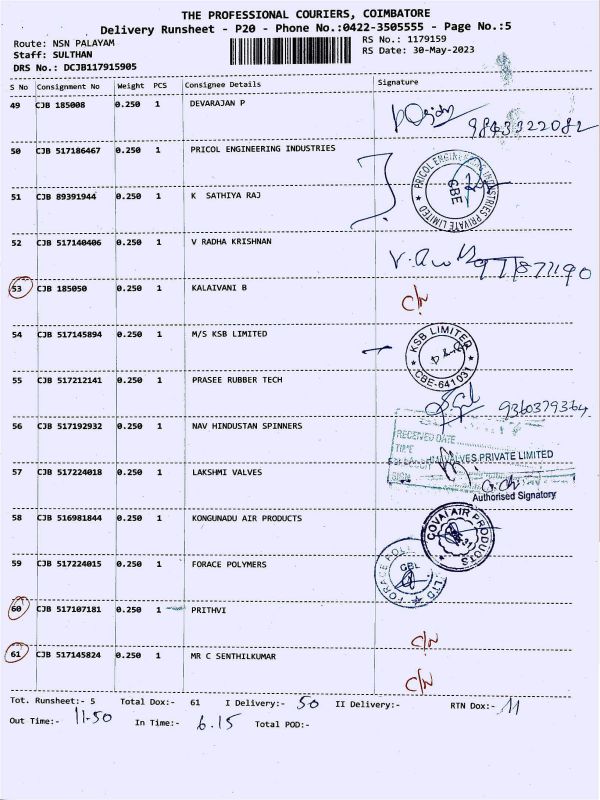 THE PROFESSIONAL COURIERS, COIMBATORE
Delivery Runsheet - P20 - Phone No.:0422-3505555 - Page No.:5
Route: NSN PALAYAM
RS No.: 1179159
Staff: SULTHAN
RS Date: 30-May-2023
DRS No.: DCJB117915905
S No Consignment No Weight PCS Consignee Details Signature
49 CJB 185008 0.250 1 DEVARAJAN P
9843322082
50 CJB 517186467 0.250 1 PRICOL ENGINEERING INDUSTRIES
PRICOL ENGINEERING INDUSTRIES PRIVATE LIMITED
CBE
51 CJB 89391944 0.250 1 K SATHIYA RAJ
52 CJB 517140406 0.250 1 V RADHA KRISHNAN
53 CJB 185050 0.250 1 KALAIVANI B
C/N
54 CJB 517145894 0.250 1 M/S KSB LIMITED
KSB LIMITED
CBE-641031
55 CJB 517212141 0.250 1 PRASEE RUBBER TECH
9360379364
56 CJB 517192932 0.250 1 NAV HINDUSTAN SPINNERS
RECEIVED DATE
TIME
SIGN
57 CJB 517224018 0.250 1 LAKSHMI VALVES
VALVES PRIVATE LIMITED
Authorised Signatory
58 CJB 516981844 0.250 1 KONGUNADU AIR PRODUCTS
COVAI AIR PRODUCTS
59 CJB 517224015 0.250 1 FORACE POLYMERS
FORACE LTD
60 CJB 517107181 0.250 1 PRITHVI
C/N
61 CJB 517145824 0.250 1 MR C SENTHILKUMAR
C/N
Tot. Runsheet:- 5 Total Dox:- 61 I Delivery:- 50 II Delivery:- RTN Dox:- 11
Out Time:- 11-50 In Time:- 6.15 Total POD:-